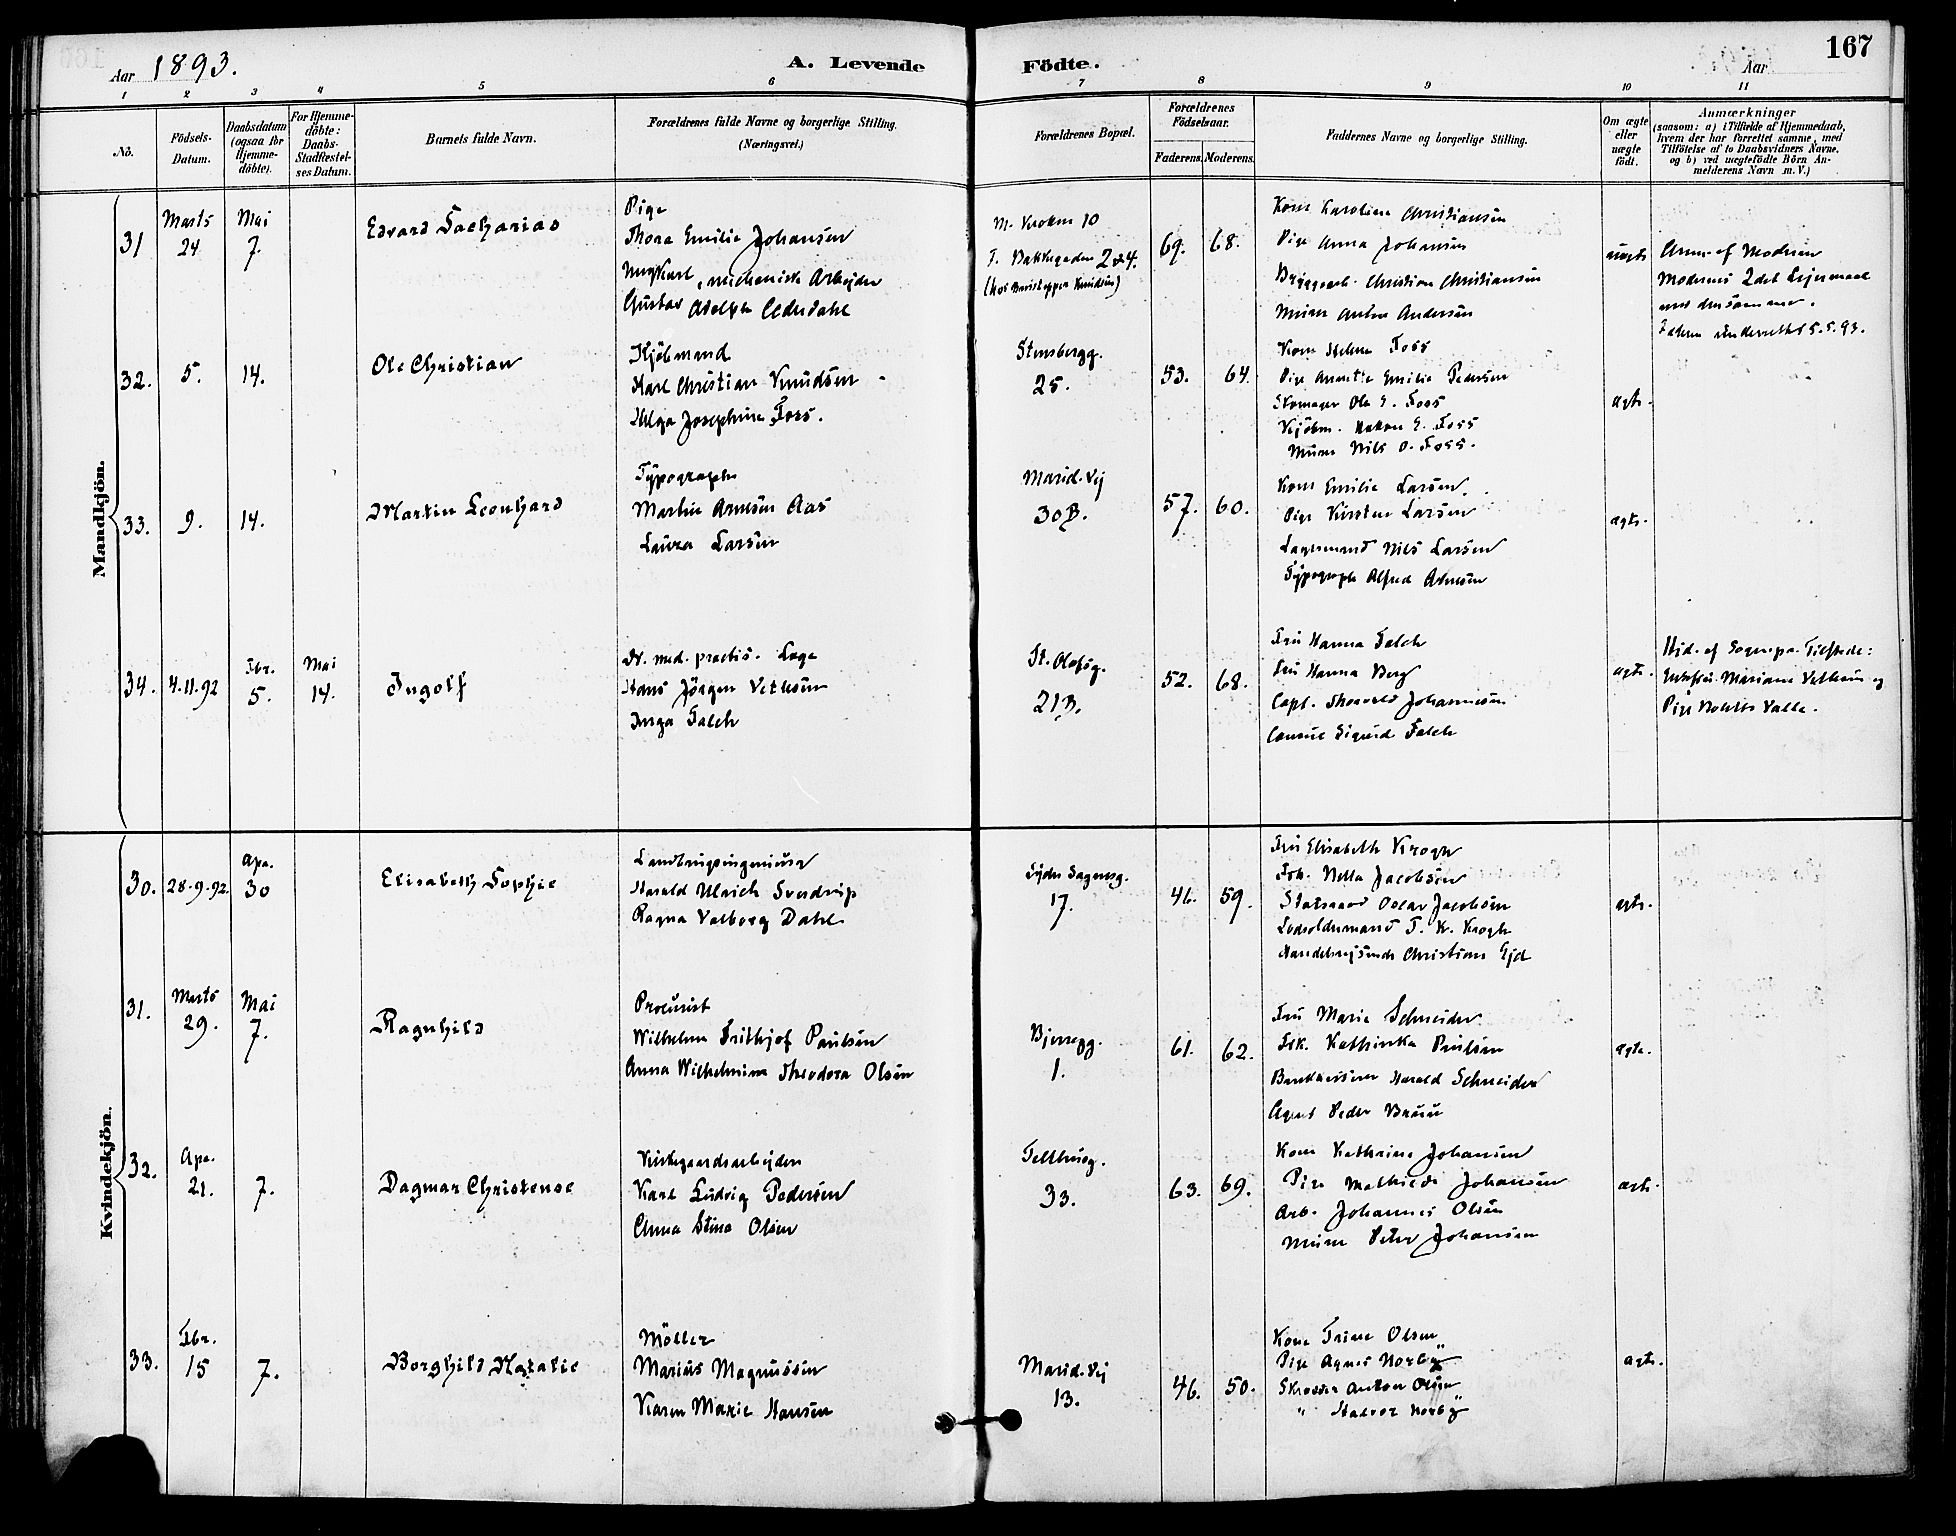 Aar 1893.
A. Levende Födte.
Aar
167
1 2 3 4 5 6 7 8 9 10 11
No.
Födsels-Datum.
Daabsdatum (ogsaa for Hjemme-döbte).
For Hjemme-döbte: Daabs-Stadfestel-ses Datum.
Barnets fulde Navn.
Forældrenes fulde Navne og borgerlige Stilling.
(Næringsvei.)
Forældrenes Bopæl.
Forældrenes Födselsaar.
Faderens. Moderens.
Faddernes Navne og borgerlige Stilling.
Om ægte eller uægte födt.
Anmærkninger
(saasom: a) i Tilfælde af Hjemmedaab,
hvem der har forrettet samme, med
Tilföielse af to Daabsvidners Navne,
og b) ved uægtefödte Börn An-
melderens Navn m. V.)
Mandkjön.
31
Marts 24
Mai 7.
Edvard Zacharias
Pige
Thora Emilie Johansen
Ungkarl, mechanisk Arbejder
Gustav Adolph Cederdahl
M. Kroken 10
F. Bakkegaden 2 & 4.
(hos Knudsen)
69. 68.
Kone Karoline Christiansen
Pige Anna Johansen
Bryggearb. Christian Christiansen
Murer Anton Andersen
uægte
Anm. af Moderen
Moderens 2det Lejermaal
med densamme.
Faderen underrettet 5.5.93.
32.
5.
14.
Ole Christian
Kjöbmand
Karl Christian Knudsen
Helga Josephine Foss.
Stensbergg.
25.
53. 64.
Kone Helene Foss
Pige Annette Emilie Pedersen
Skomager Ole E. Foss
Kjöbm. Hakon E. Foss
Murer Nils O. Foss.
ægte.
33.
9.
14.
Martin Leonhard
Typograph
Martin Arnesen Aas
Laura Larsen
Marid. Vej
30B.
57. 60.
Kone Emilie Larsen.
Pige Kirstine Larsen
Lagermand Nils Larsen
Typograph Alfred Arnesen
ægte.
34.
4.11.92
Fbr. 5.
Mai 14.
Ingolf
Dr. med. practis. Læge
Hans Jörgen Vetlesen
Inga Falch
St. Olafsg.
21B.
52. 68.
Fru Hanna Falch
Fru Hanna Berg
Capt. Thorvald Johannesen
Consul Sigurd Falch
ægte.
Hjd. af Sognepr. Tilstede:
Mariane Vetlesen og
Pige Valle.
Kvindekjön.
30.
28.9.92.
Apr. 30
Elisabeth Sophie
Landbrugsingeniör
Harald Ulrich Sverdrup
Ragna Valborg Dahl
Tyder Sagensg.
17.
46. 59.
Fru Elisabeth Krogh
Frk. Nella Jacobsen
Statsraad Oscar Jacobsen
Lodsoldermand F. K. Krogh
Handelsrejsende Christian Ejd
ægte.
31.
Marts 29.
Mai 7.
Ragnhild
Procurist
Wilhelm Frithjof Paulsen
Anna Wilhelmine Theodora Olsen
Bjerregg.
1.
61. 62.
Fru Marie Schneider
Frk. Kathinka Paulsen
Bankkasserer Harald Schneider
Agent Peder Bruun
ægte.
32.
Apr. 21.
7.
Dagmar Christense
Kirkegaardsarbejder
Karl Ludvig Pedersen
Anna Stina Olsen
Telthusg.
33.
63. 69.
Kone Kathrine Johansen
Pige Mathilde Johansen
Arb. Johannes Olsen
Murer Peter Johansen
ægte.
33.
Fbr. 15
7.
Borghild Natalie
Möller
Marius Magnussen
Karen Marie Hansen
Marid. Vej
13.
46. 50.
Kone Trine Olsen
Pige Agnes Norby
Skrædder Anton Olsen
" Halvor Norby
ægte.